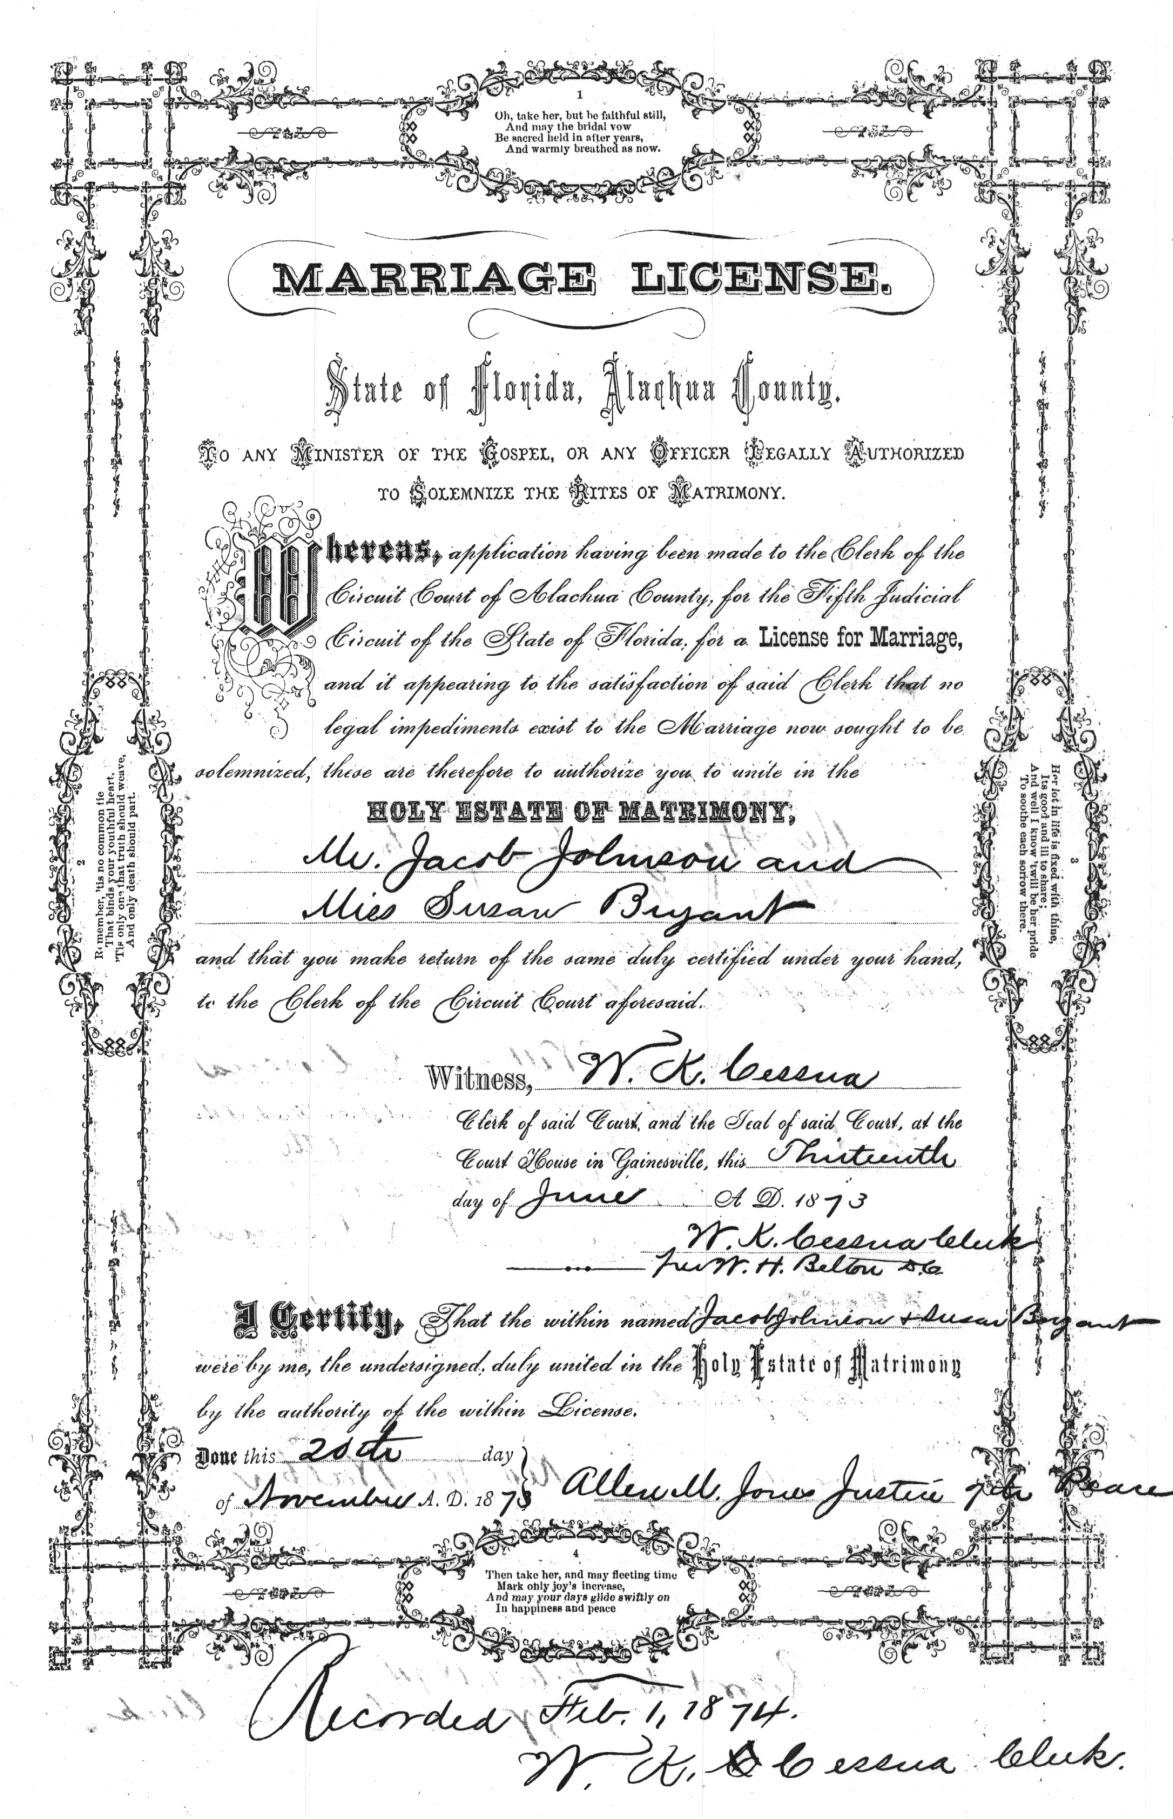 1
Oh, take her, but be faithful still,
And may the bridal vow
Be sacred held in after years,
And warmly breathed as now.
MARRIAGE LICENSE.
State of Florida, Alachua County.
TO ANY MINISTER OF THE GOSPEL, OR ANY OFFICER LEGALLY AUTHORIZED
TO SOLEMNIZE THE RITES OF MATRIMONY.
Whereas, application having been made to the Clerk of the
Circuit Court of Alachua County, for the Fifth Judicial
Circuit of the State of Florida, for a License for Marriage,
and it appearing to the satisfaction of said Clerk that no
legal impediments exist to the Marriage now sought to be
solemnized, these are therefore to authorize you to unite in the
HOLY ESTATE OF MATRIMONY,
Mr. Jacob Johnson and
Miss Susan Bryant
and that you make return of the same duly certified under your hand,
to the Clerk of the Circuit Court aforesaid.
2
Remember, 'tis no common tie
That binds your youthful heart,
'Tis only one that truth should weave,
And only death should part.
3
Her lot in life is fixed with thine,
Its good and ill to share;
And well I know 'twill be her pride
To soothe each sorrow there.
Witness, W. K. Cessna
Clerk of said Court, and the Seal of said Court, at the
Court House in Gainesville, this Thirteenth
day of June A D. 1873
W. K. Cessna Clerk
Per W. H. Belton D.C
I Certify, That the within named Jacob Johnson & Susan Bryant
were by me, the undersigned, duly united in the Holy Estate of Matrimony
by the authority of the within License.
Done this 20th day
of November A. D. 1873 Allen M. Jones Justice of the Peace
4
Then take her, and may fleeting time
Mark only joy's increase,
And may your days glide swiftly on
In happiness and peace
Recorded Feb. 1, 1874.
W. K. Cessna Clerk.